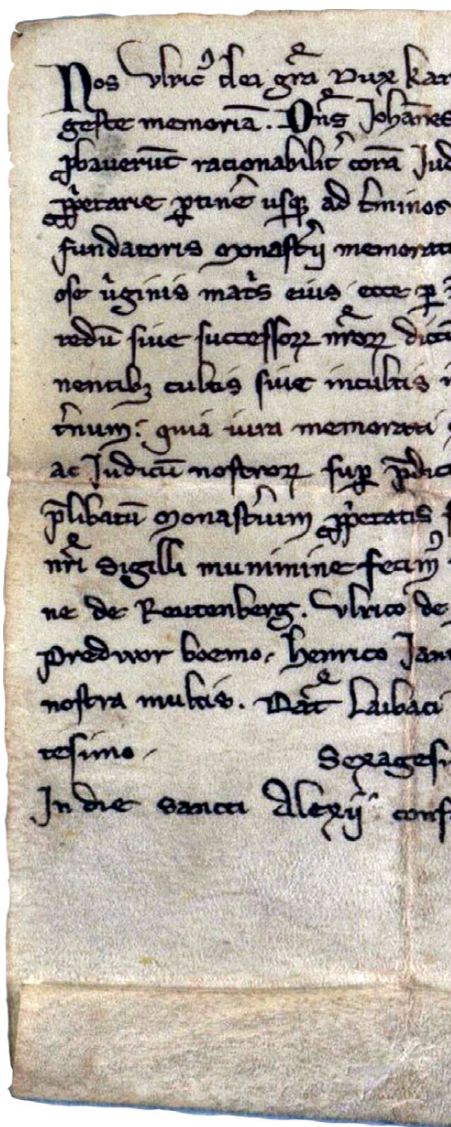 Nos Vlric᷒ dei gr̃a Dux Kar
geste memoriã. Dñs Johãnes
ꝓbaverũt racionabilit̃ corã Jud
ꝓp̃etarie ꝑtinẽ usqꝫ ad t̃minos
fundatoris monast̃ij memorat
ose ũginis mat̃s eius ecce ꝑ
redũ siue successorꝝ nr̃orꝝ dictũ
nentibꝫ cultis siue incultis
t̃num; quia iura memorati
ac Judicũ nostrorꝝ suꝑ p̃dict
p̃libatũ monast̃ium ꝓp̃etatis
nr̃i Sigilli munimine fecim᷒
ne de Reutenberg. Vlrico de
Predwor boemo. Henrico Jan
nostra multis. Dat̃ Laibaci
tesimo. Sexagesi
In die sancti Alexij conf